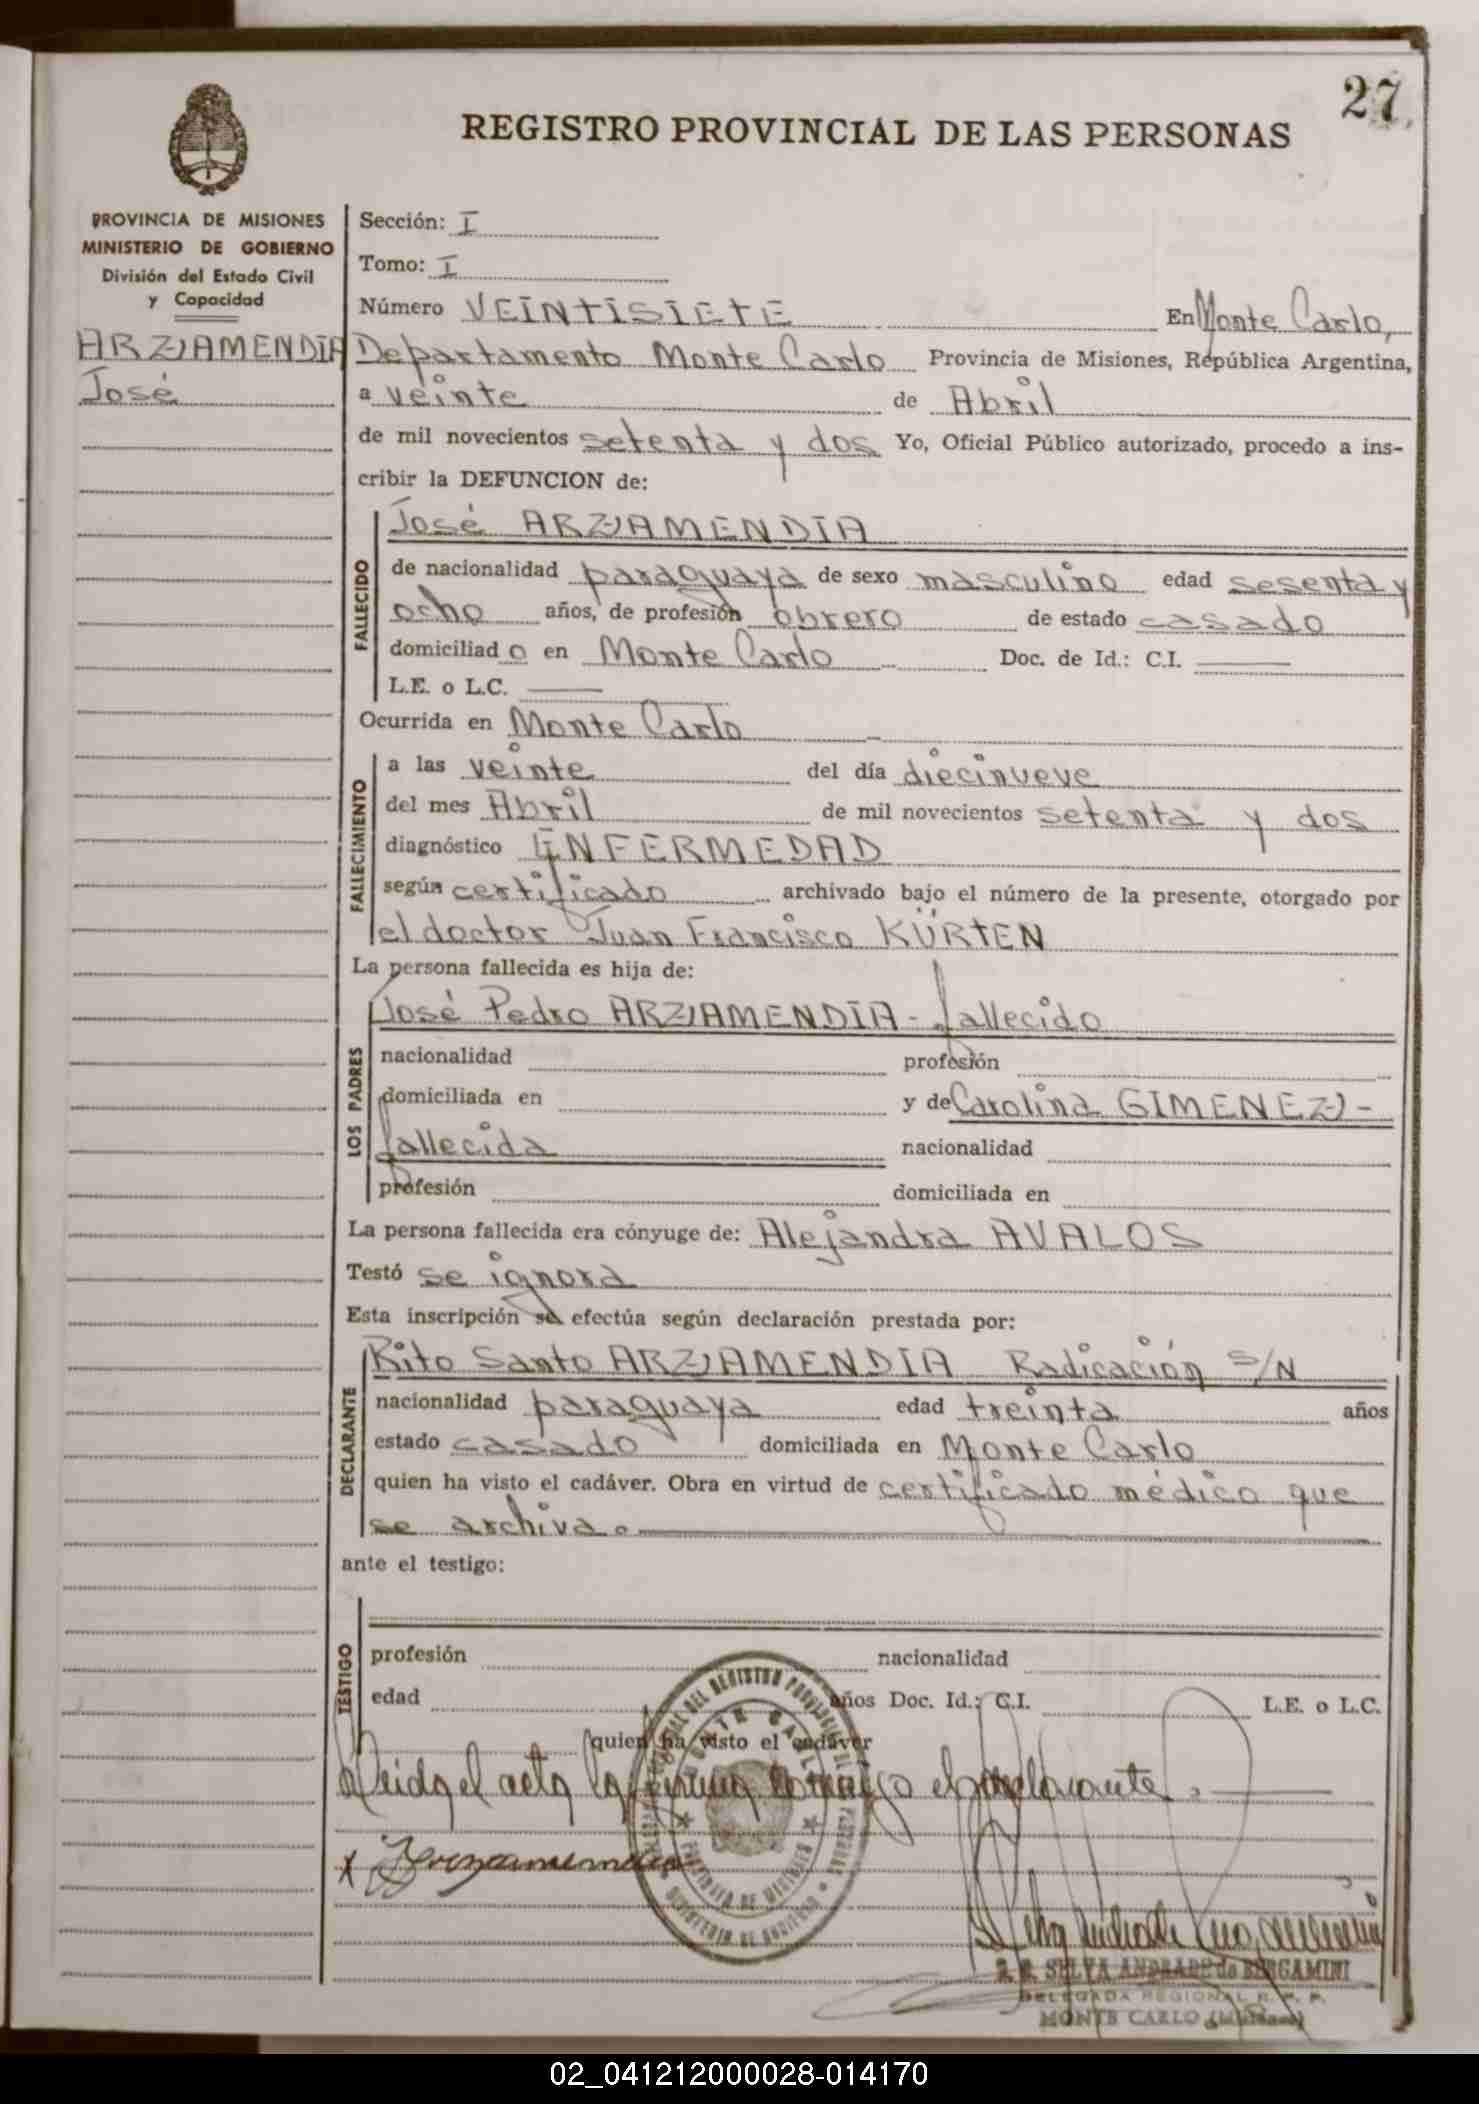 27
REGISTRO PROVINCIAL DE LAS PERSONAS
PROVINCIA DE MISIONES
MINISTERIO DE GOBIERNO
División del Estado Civil
y Capacidad
ARZAMENDIA
José
Sección: I
Tomo: I
Número VEINTISIETE En Monte Carlo,
Departamento Monte Carlo Provincia de Misiones, República Argentina,
a veinte de Abril
de mil novecientos setenta y dos Yo, Oficial Público autorizado, procedo a ins-
cribir la DEFUNCION de:
FALLECIDO
José ARZAMENDIA
de nacionalidad paraguaya de sexo masculino edad sesenta y
ocho años, de profesión obrero de estado casado
domiciliado en Monte Carlo Doc. de Id.: C.I. ———
L.E. o L.C. ———
Ocurrida en Monte Carlo
FALLECIMIENTO
a las veinte del día diecinueve
del mes Abril de mil novecientos setenta y dos
diagnóstico ENFERMEDAD
según certificado archivado bajo el número de la presente, otorgado por
el doctor Juan Francisco KÜRTEN
La persona fallecida es hija de:
LOS PADRES
José Pedro ARZAMENDIA - fallecido
nacionalidad profesión
domiciliada en y de Carolina GIMENEZ -
fallecida nacionalidad
profesión domiciliada en
La persona fallecida era cónyuge de: Alejandra AVALOS
Testó se ignora
Esta inscripción se efectúa según declaración prestada por:
DECLARANTE
Rito Santo ARZAMENDIA Radicación S/N
nacionalidad paraguaya edad treinta años
estado casado domiciliada en Monte Carlo
quien ha visto el cadáver. Obra en virtud de certificado médico que
se archiva.
ante el testigo:
TESTIGO
profesión nacionalidad
edad años Doc. Id.: C.I. L.E. o L.C.
quien ha visto el cadáver
Leida el acta la firma conmigo el declarante.
x Arzamendia
PROVINCIA DE MISIONES
MINISTERIO DE GOBIERNO
SELVA ANDRADE de BERGAMINI
DELEGADA REGIONAL R. P. P.
MONTE CARLO (Misiones)
02_041212000028-014170